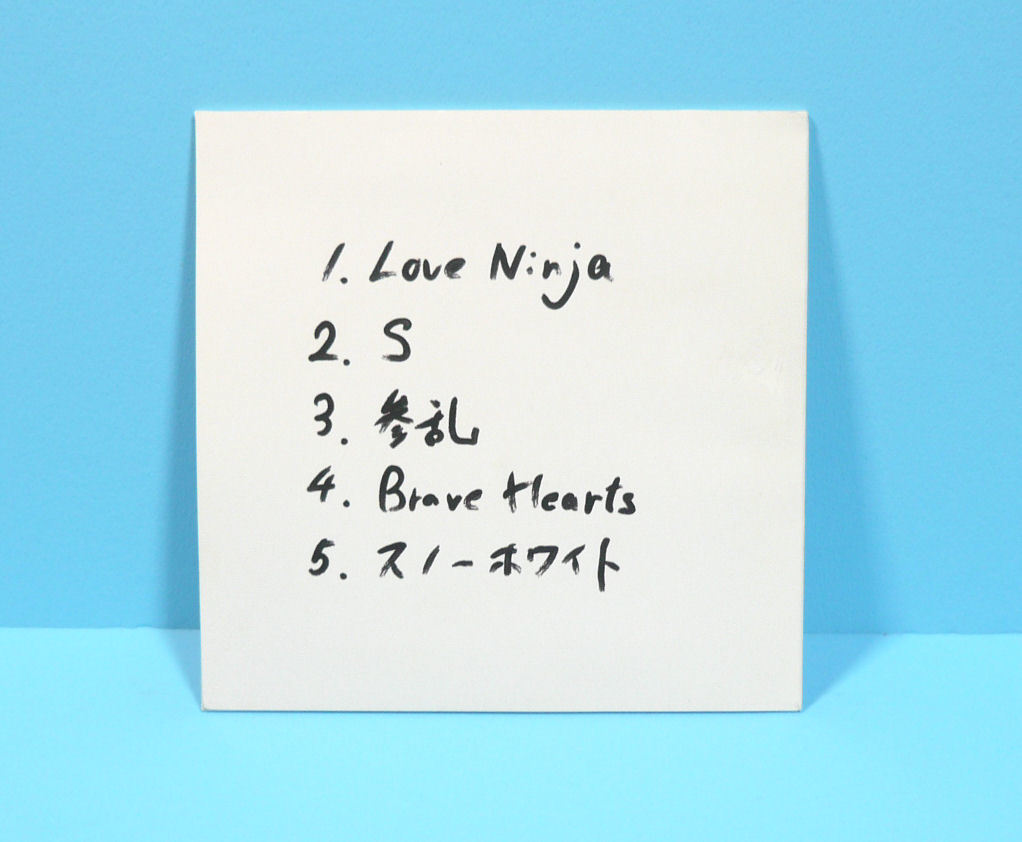 1. Love Ninja
2. S
3. 参乱
4. Brave Hearts
5. スノーホワイト